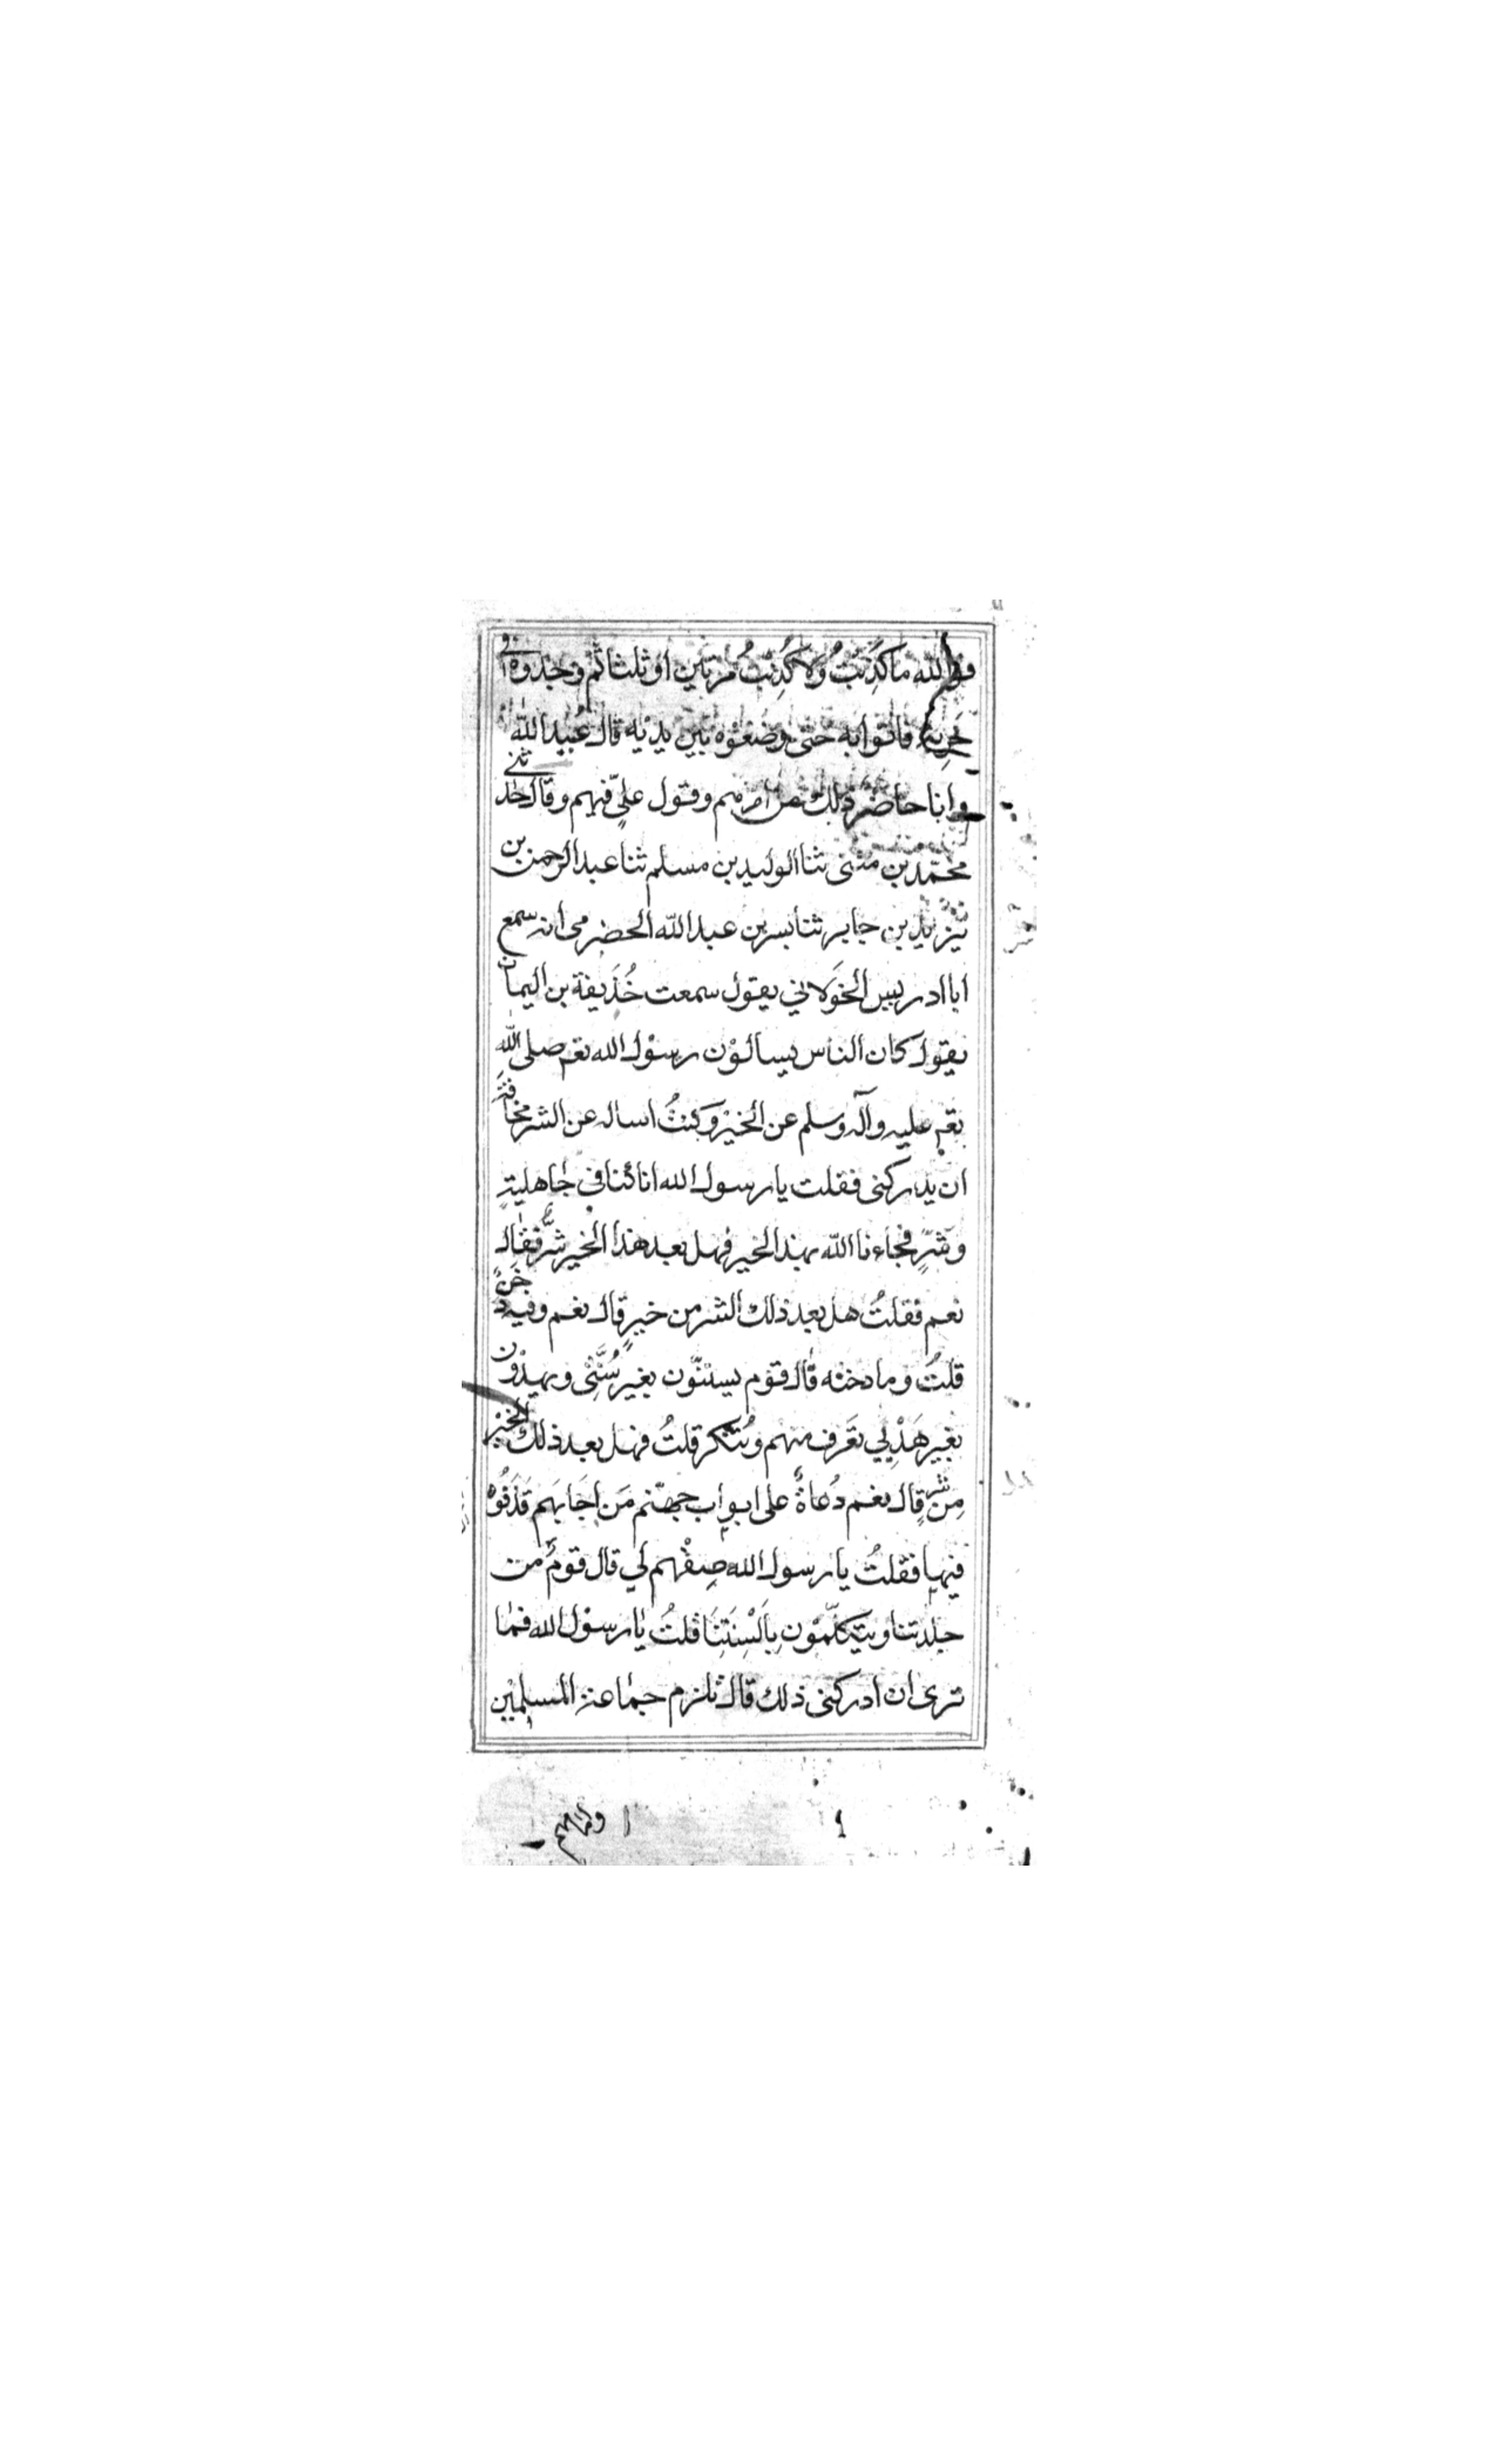 فوالله ما كَذَبْتُ ولا كُذِبْتُ مرتين او ثلثا ثم وجدوه فى
خَرِبة فاتوا به حتى وضعوه بين يديه قال عُبيد الله
وانا حاضر ذلك من امرهم وقول علىّ فيهم وقال حدثنى
محمّد بن مثنى ثنا الوليد بن مسلم ثنا عبد الرحمن بن
يزيد بن جابر ثنا بسر بن عبد الله الحضرمى انه سمع
ابا ادريس الخَولاني يقول سمعت حُذَيفة بن اليمان
يقول كان الناس يسالون رسول الله صلى الله
عليه وآله وسلم عن الخير وكنتُ اساله عن الشر مخافَة
ان يدركنى فقلت يا رسول الله انا كنا فى جاهلية
وشرٍّ فجاءنا الله بهذا الخير فهل بعد هذا الخير شرٌّ فقال
نعم فقلتُ هل بعد ذلك الشر من خيرٍ قال نعم وفيه دَخَنٌ
قلتُ وما دخنه قال قوم يستنّون بغير سُنَّتى ويهدون
بغير هَدْيي تَعرف منهم وتُنكر قلتُ فهل بعد ذلك الخير
مِن شرٍّ قال نعم دُعاةٌ على ابواب جهنّم مَن اجَابَهم قَذَفُوه
فيها فقلتُ يا رسول الله صِفْهم لي قال قومٌ من
جلدتنا ويتكلّمون بِاَلْسِنَتِنَا قلتُ يا رسول الله فما
ترى ان ادركنى ذلك قال تلزم جماعة المسلمين
وامامهم